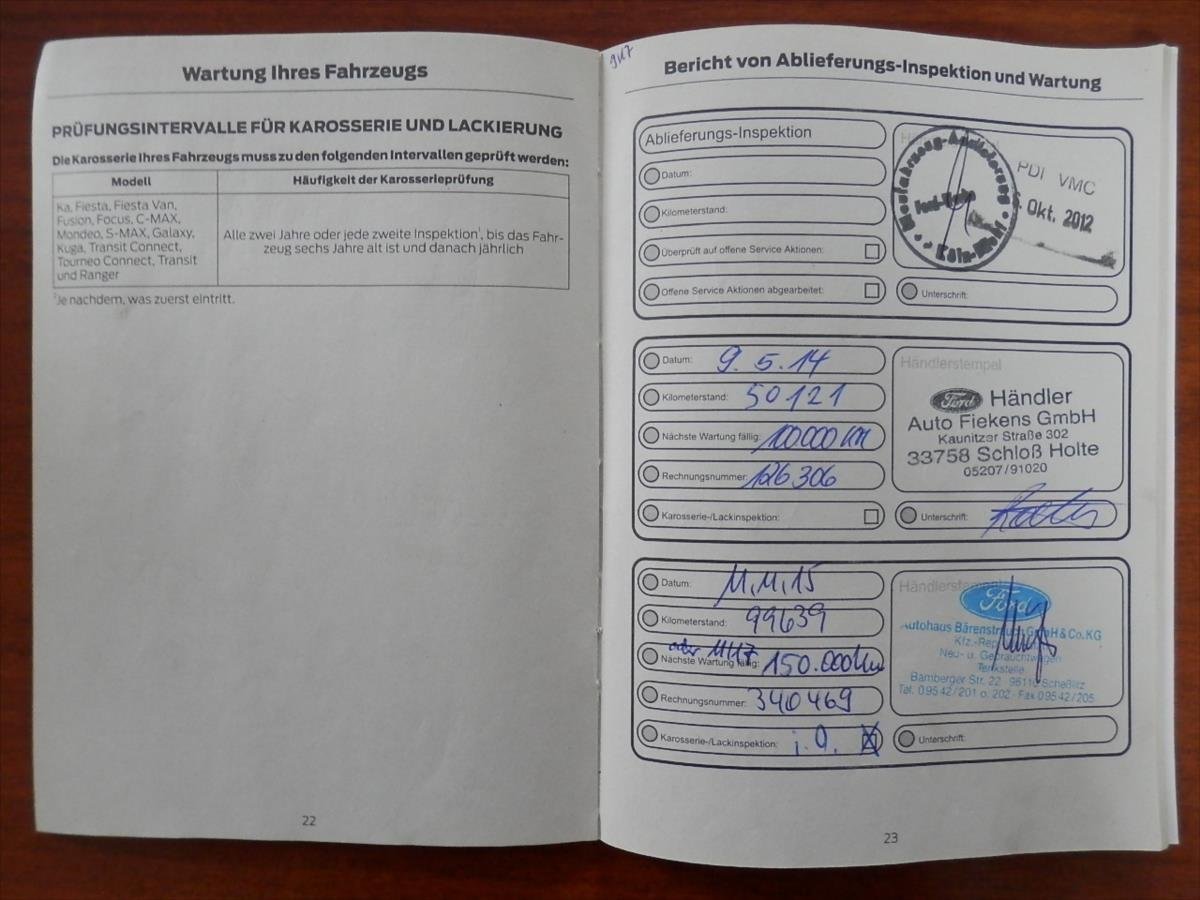 Wartung Ihres Fahrzeugs
PRÜFUNGSINTERVALLE FÜR KAROSSERIE UND LACKIERUNG
Die Karosserie Ihres Fahrzeugs muss zu den folgenden Intervallen geprüft werden:
Modell
Häufigkeit der Karosserieprüfung
Ka, Fiesta, Fiesta Van,
Fusion, Focus, C-MAX,
Mondeo, S-MAX, Galaxy,
Kuga, Transit Connect,
Tourneo Connect, Transit
und Ranger
Alle zwei Jahre oder jede zweite Inspektion¹, bis das Fahr-
zeug sechs Jahre alt ist und danach jährlich
¹Je nachdem, was zuerst eintritt.
22
Bericht von Ablieferungs-Inspektion und Wartung
Ablieferungs-Inspektion
Datum:
Kilometerstand:
Überprüft auf offene Service Aktionen:
Offene Service Aktionen abgearbeitet:
Neufahrzeug-Auslieferung
Ford-Werke
Köln
PDI VMC
Okt. 2012
Unterschrift:
Datum: 9.5.14
Kilometerstand: 50121
Nächste Wartung fällig: 100000 km
Rechnungsnummer: 126306
Karosserie-/Lackinspektion:
Händlerstempel
Ford Händler
Auto Fiekens GmbH
Kaunitzer Straße 302
33758 Schloß Holte
05207/91020
Unterschrift:
Datum: 11.11.15
Kilometerstand: 99639
oder 11/17
Nächste Wartung fällig: 150.000 km
Rechnungsnummer: 340469
Karosserie-/Lackinspektion: i.O.
Händlerstempel
Ford
Autohaus Bärenstrauch GmbH & Co.KG
Neu- u. Gebrauchtwagen
Tankstelle
Bamberger Str. 22 · 96110 Scheßlitz
Tel. 09542/201 o. 202 · Fax 09542/205
Unterschrift:
23